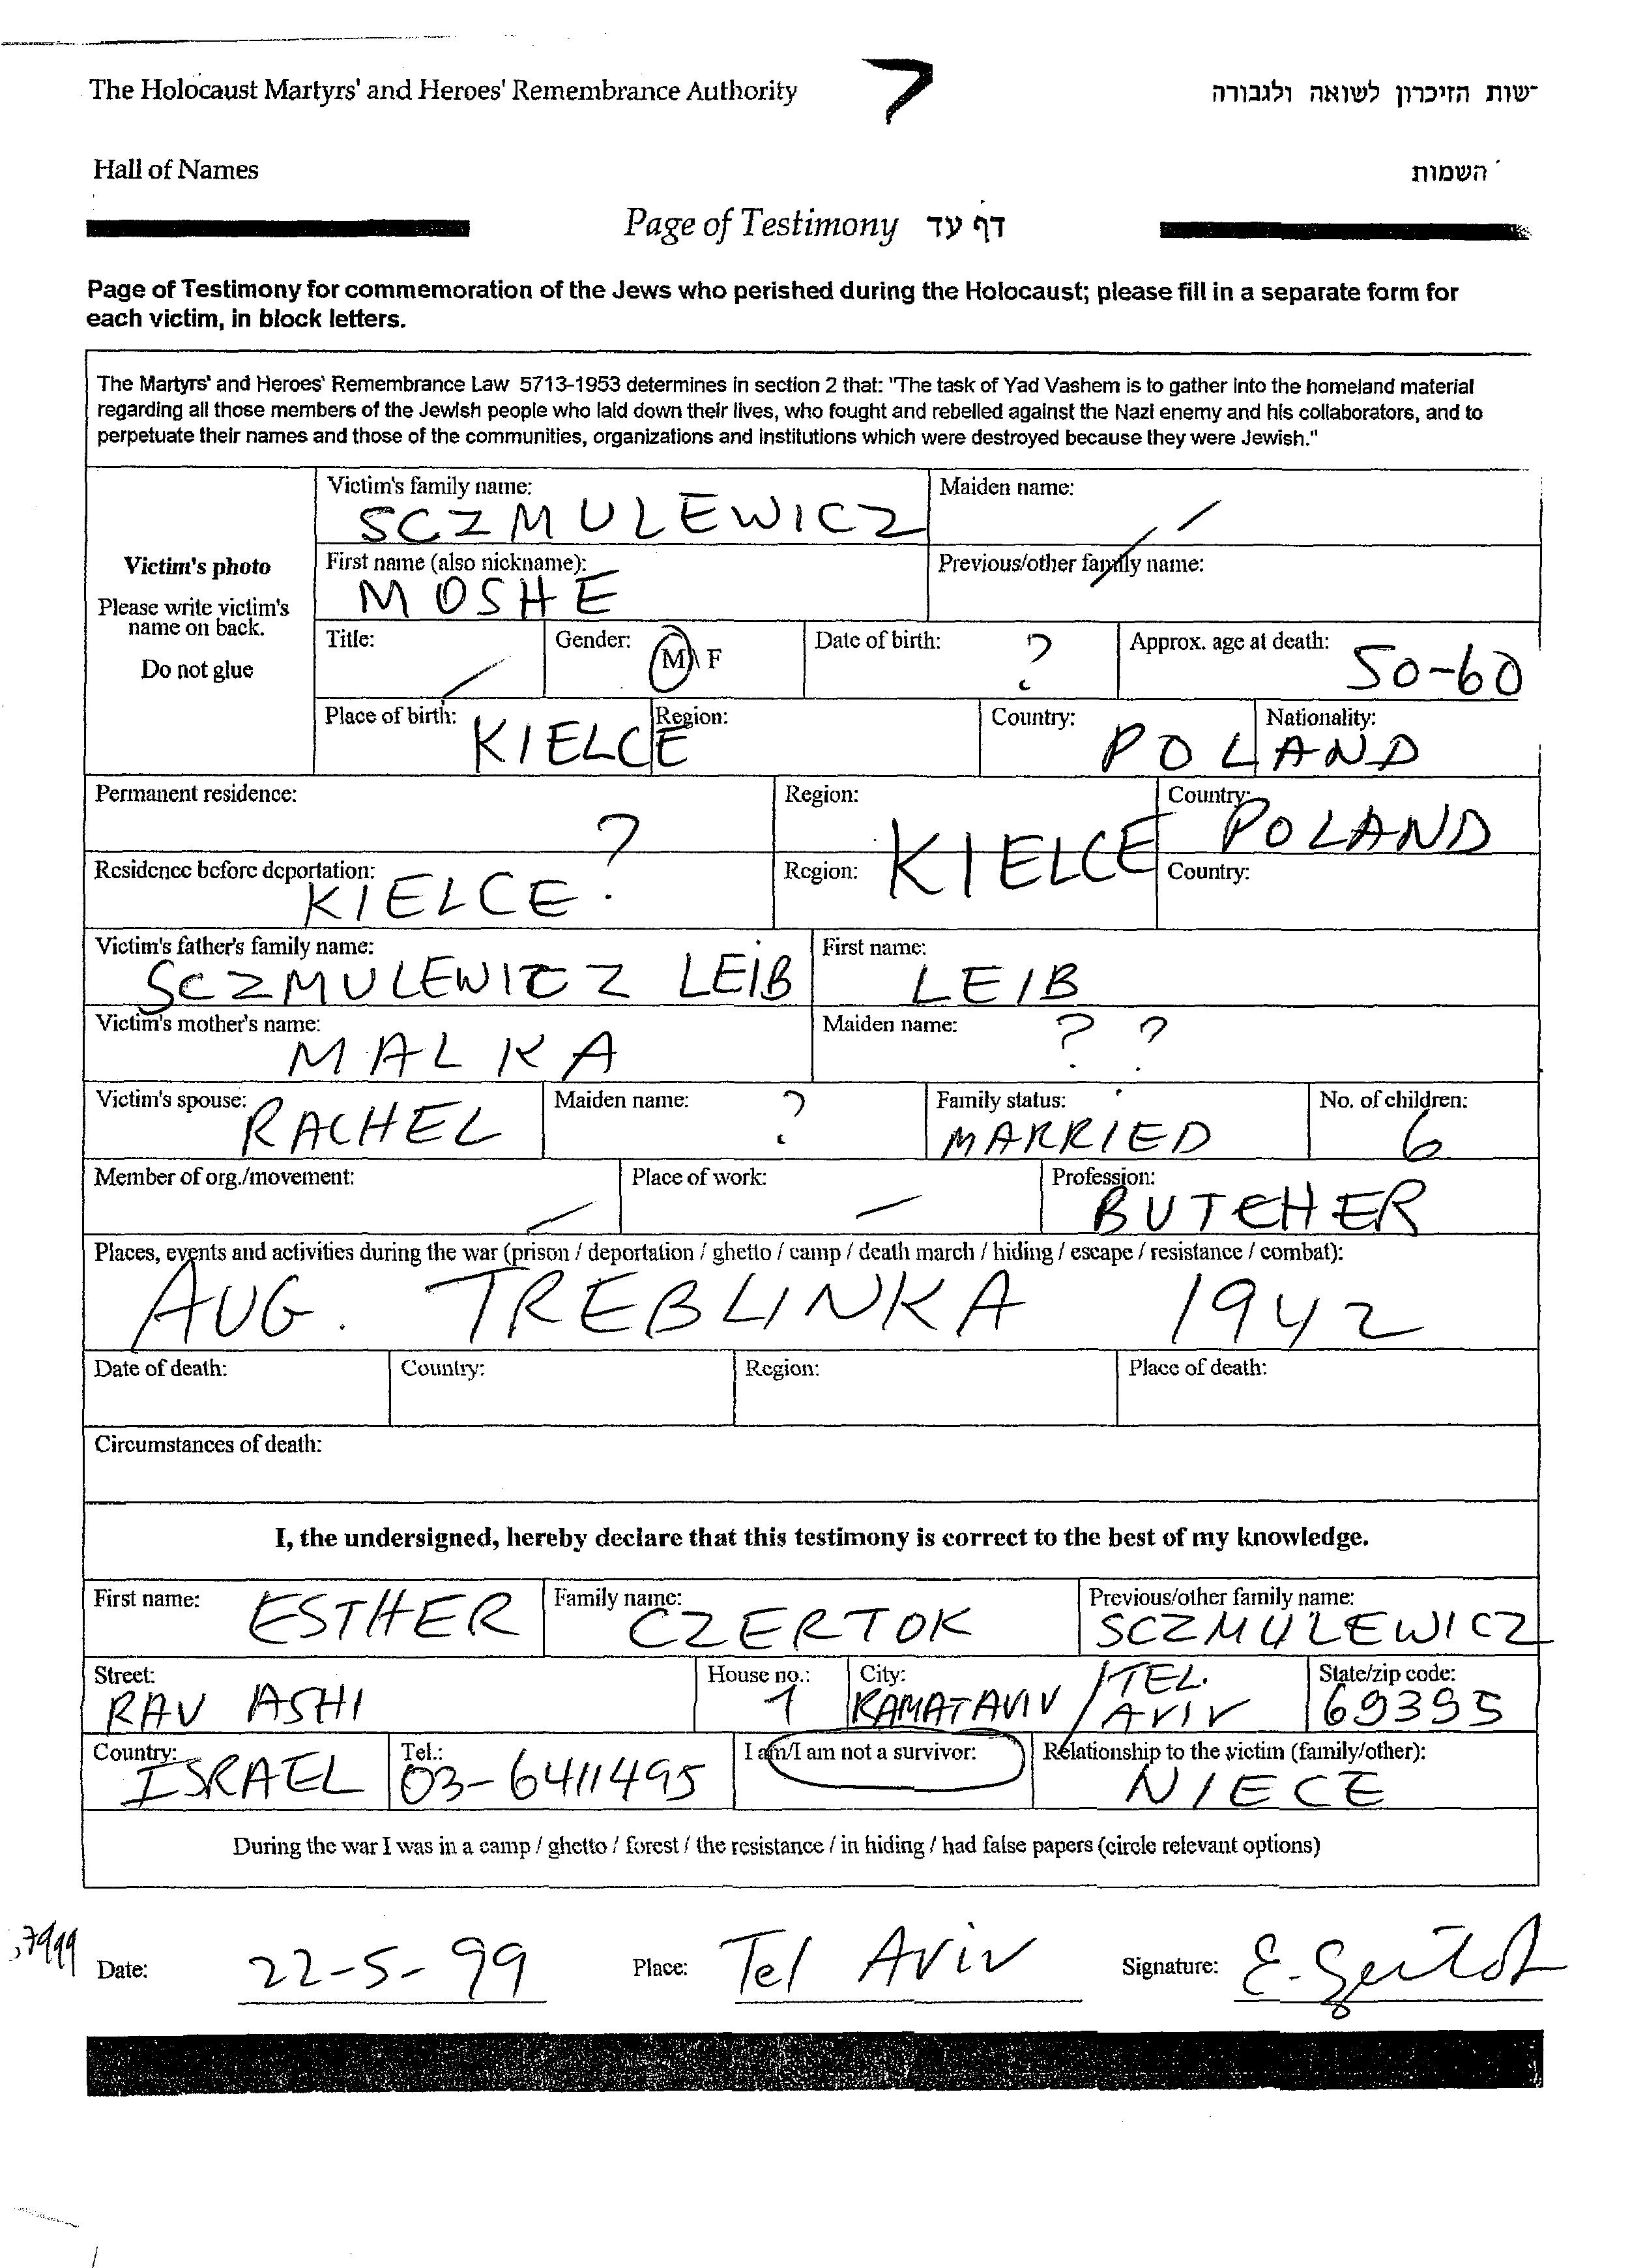 The Holocaust Martyrs' and Heroes' Remembrance Authority 7 רשות הזיכרון לשואה ולגבורה
Hall of Names השמות
Page of Testimony דף עד
Page of Testimony for commemoration of the Jews who perished during the Holocaust; please fill in a separate form for
each victim, in block letters.
The Martyrs' and Heroes' Remembrance Law 5713-1953 determines in section 2 that: "The task of Yad Vashem is to gather into the homeland material
regarding all those members of the Jewish people who laid down their lives, who fought and rebelled against the Nazi enemy and his collaborators, and to
perpetuate their names and those of the communities, organizations and institutions which were destroyed because they were Jewish."
Victim's photo
Please write victim's
name on back.
Do not glue
Victim's family name: Maiden name:
SCZMULEWICZ /
First name (also nickname): Previous/other family name:
MOSHE /
Title: / Gender: M \ F Date of birth: ? Approx. age at death: 50-60
Place of birth: KIELCE Region: Country: POLAND Nationality:
Permanent residence: ? Region: KIELCE Country: POLAND
Residence before deportation: KIELCE Region: Country:
Victim's father's family name: First name:
SCZMULEWICZ LEIB LEIB
Victim's mother's name: MALKA Maiden name: ? ?
Victim's spouse: RACHEL Maiden name: ? Family status: MARRIED No. of children: 6
Member of org./movement: / Place of work: / Profession: BUTCHER
Places, events and activities during the war (prison / deportation / ghetto / camp / death march / hiding / escape / resistance / combat):
AUG. TREBLINKA 1942
Date of death: Country: Region: Place of death:
Circumstances of death:
I, the undersigned, hereby declare that this testimony is correct to the best of my knowledge.
First name: ESTHER Family name: CZERTOK Previous/other family name: SCZMULEWICZ
Street: RAV ASHI House no.: 1 City: RAMAT AVIV / TEL. AVIV State/zip code: 69395
Country: ISRAEL Tel.: 03-6411495 I am/I am not a survivor: Relationship to the victim (family/other): NIECE
During the war I was in a camp / ghetto / forest / the resistance / in hiding / had false papers (circle relevant options)
Date: 22-5-99 Place: Tel Aviv Signature: